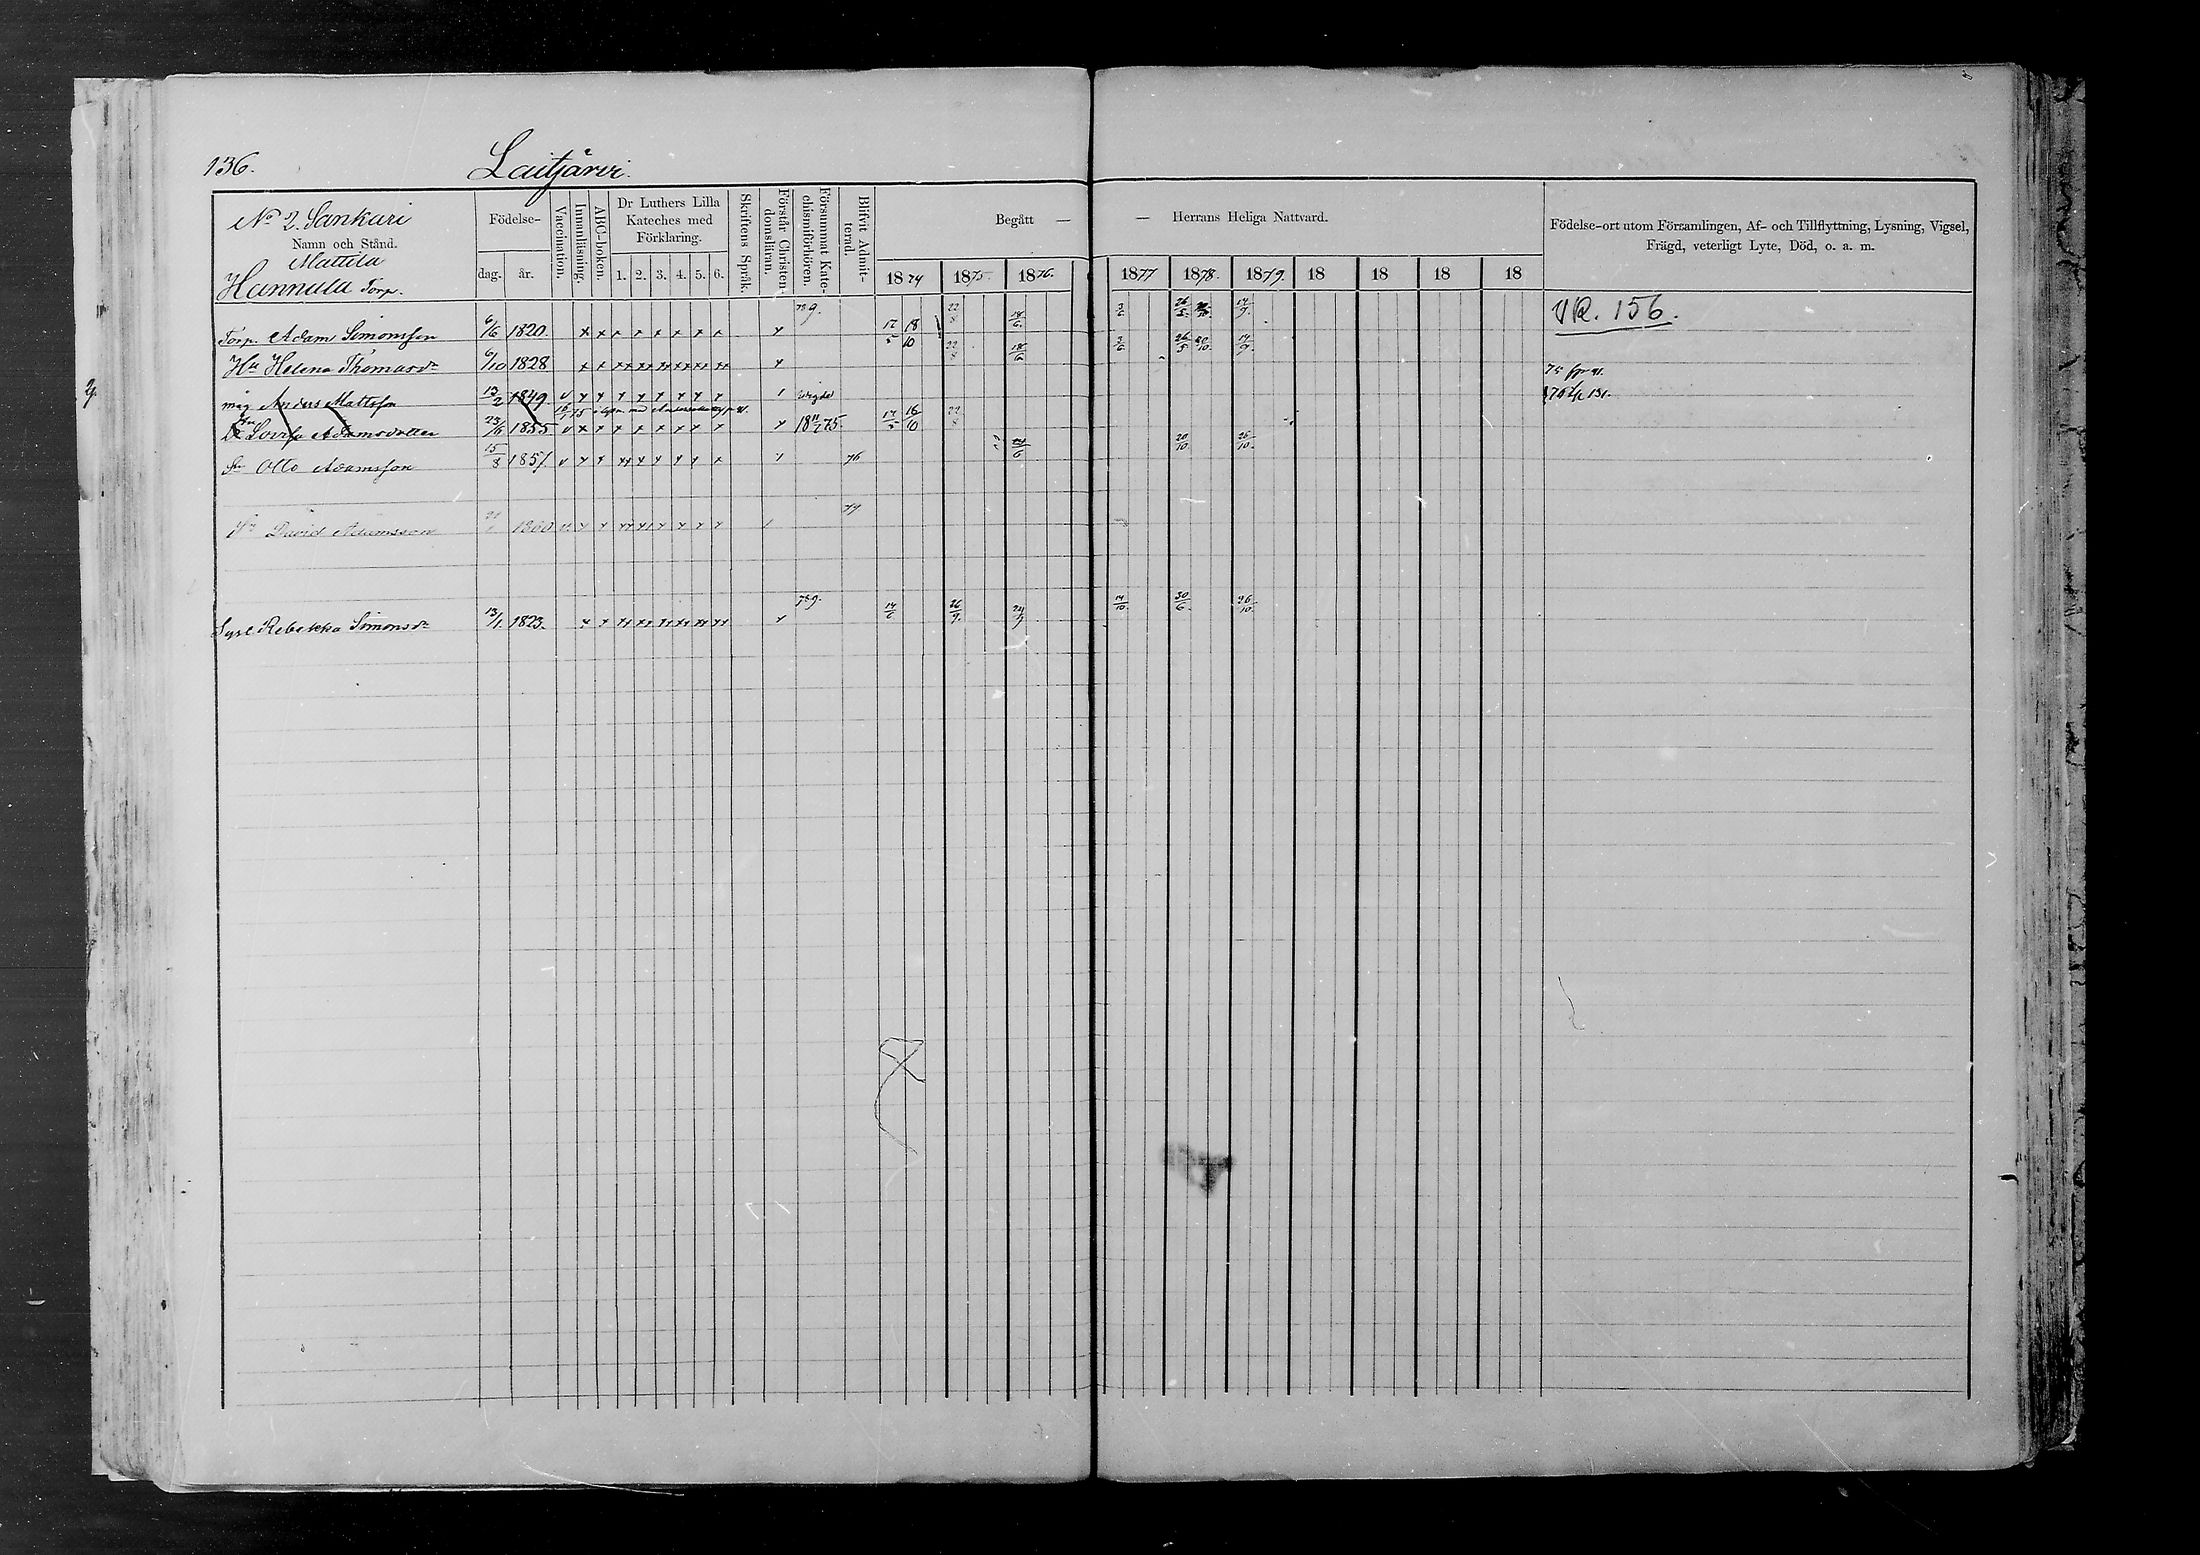 136.
Laitjärvi.
No 2. Sankari
Namn och Stånd.
Mattila
Hannula Torp.
Födelse-
dag.
år.
Vaccination.
Innanläsning.
ABC-boken.
Dr Luthers Lilla
Kateches med
Förklaring.
1. 2. 3. 4. 5. 6.
Skriftens Språk.
Förstår Christen-
domsläran.
Försummat Kate-
chismiförhören.
Blifvit Admit-
terad.
Begått —
— Herrans Heliga Nattvard.
1874 1875. 1876. 1877 1878. 1879. 18 18 18 18
Födelse-ort utom Församlingen, Af- och Tillflyttning, Lysning, Vigsel,
Frägd, veterligt Lyte, Död, o. a. m.
Torp. Adam Simonsson 6/6 1820. x x x x x x x x x 17/5 18/10 22/8 18/6. 26/5 14/9. VR. 156.
Hu Helena Thomasdr 6/10 1828 x x xx xx xx xx xx xx x 22/8 18/6 3/6 26/5 20/10. 14/9.
måg Anders Mattsson 13/2 1849 v x x x x x x x x vigde
Dr Lovisa Adamsdotter 23/6 1855 v x x x x x x x x x 18 75. 17/5 18/10 22/8
Sn Otto Adamsson 15/8 1857. v x x xx x x x x x x 76 24/6 20/10. 26/10.
Sn David Adamsson 1860 v. x x xx xx x x x x 77
Syst Rebekka Simonsdr 13/1. 1823. x x xx xx xx xx xx xx x 14/6 26/9. 14/10. 30/6. 26/10.